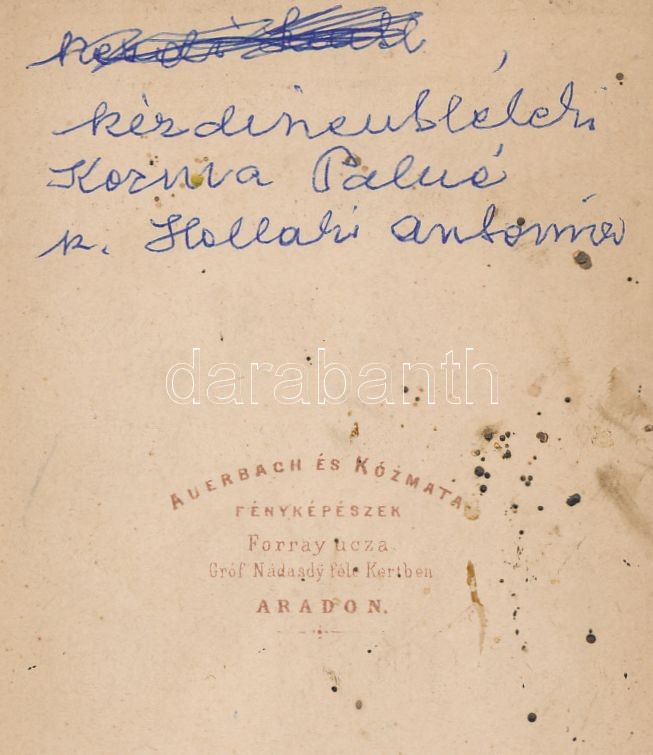 kézdiszentléleki
Kozma Pálné
k. Hollaki Antónia
darabanth
AUERBACH ÉS KÓZMATA
FÉNYKÉPÉSZEK
Forray ucza
Gróf Nádasdy féle Kertben
ARADON.